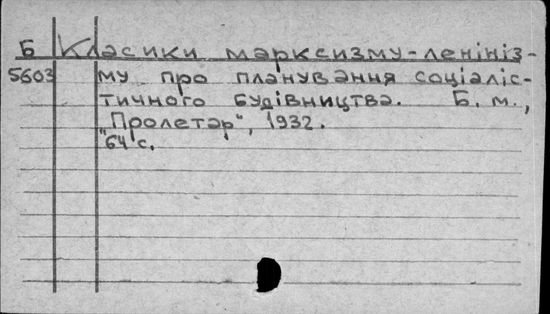 Б Класики марксизму-лєнініз-
5603 му про планування соціаліс-
тичного будівництва. Б. м.,
"Пролетар", 1932.
64 с.